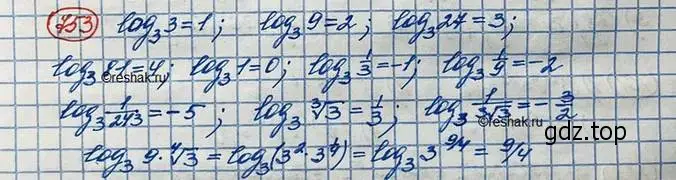 753 log₃ 3 = 1; log₃ 9 = 2; log₃ 27 = 3;
log₃ 81 = 4; log₃ 1 = 0; log₃ 1/3 = -1; log₃ 1/9 = -2
log₃ 1/243 = -5; log₃ ∛3 = 1/3; log₃ 1/(3√3) = -3/2
log₃ 9·⁴√3 = log₃(3²·3^(1/4)) = log₃ 3^(9/4) = 9/4
©reshak.ru
©reshak.ru
gdz.top